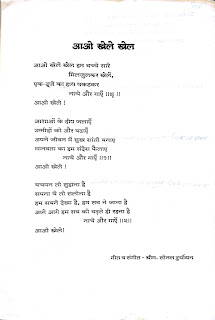 आओ खेले खेल
आओ खेलें खेल हम बच्चे सारे
मिलजुलकर खेलें,
एक-दूजे का हाथ पकडकर
नाचे और गाएँ ॥धृ॥
आओ खेले !
आशाओं के दीप जलाएँ
उम्मीदों की और बढाएँ
अपने जीवन में सुख शांती बनाए
मानवता का हम संदेश फैलाए
नाचे और गाएँ ॥१॥
आओ खेले !
बचपन तो सुहाना है
सपना ये तो सलोना है
हम सबने देखा है, हम सब ने जाना है
आगे आगे हम सब को बढ़ते ही रहना है
नाचे और गाएँ ॥२॥
आओ खेले!
गीत व संगीत - श्रीम.